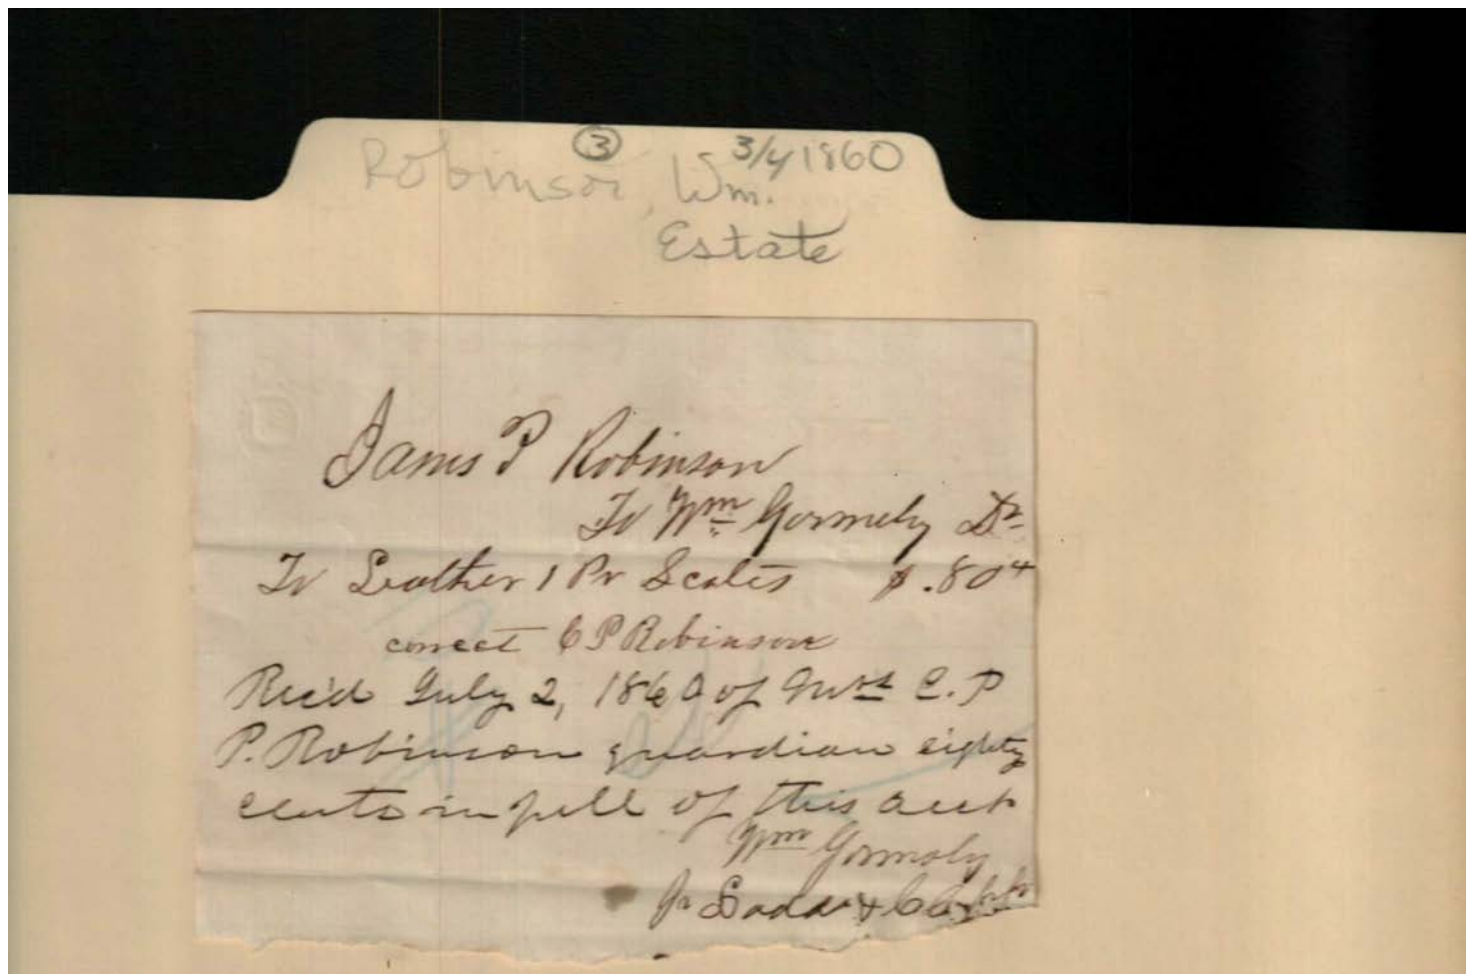 ③ 3/4 1860
Robinson, Wm.
Estate
James P Robinson
To Wm Gormely Dr
To Leather 1 Pr Scates $ .80
correct C P Robinson
Rec'd July 2, 1860 of Mrs C. P
P. Robinson guardian eighty
cents in full of this acct
Wm Gormely